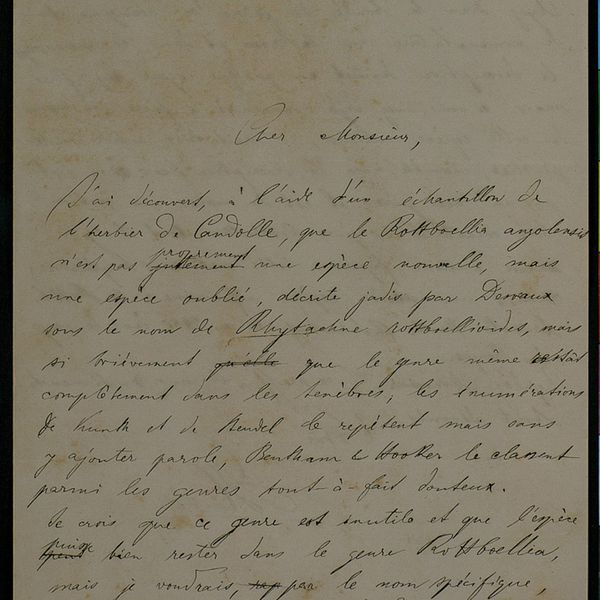 Cher Monsieur,
J'ai découvert, à l'aide d'un échantillon de
l'herbier de Candolle, que le Rottboellia angolensis
n'est pas proprement une espèce nouvelle, mais
une espèce oublié, décrite jadis par Desvaux
sous le nom de Rhytachne rottboellioides, mais
si brièvement qu'elle que le genre même restât
complètement dans les tenèbres, les énumérations
de Kunth et de Steudel le repètent mais sans
y ajouter parole, Bentham & Hooker le classent
parmi les genres tout-à-fait douteux.
Je crois que ce genre est inutile et que l'espèce
puisse bien rester dans le genre Rottboellia,
mais je voudrais, par le nom spécifique,